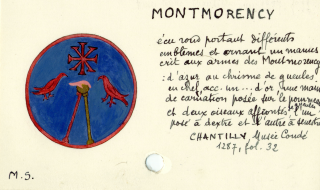 MONTMORENCY
écu rond portant différents
emblèmes et ornant un manus
crit aux armes de Montmorency
: d'azur au chrisme de gueules
en chef, acc. un... d'or, une main
de carnation posée sur le pomme
et deux oiseaux affrontés, l'un
posé à dextre et l'autre à senestre
CHANTILLY, Musée Condé
1287, fol. 32
M.S.